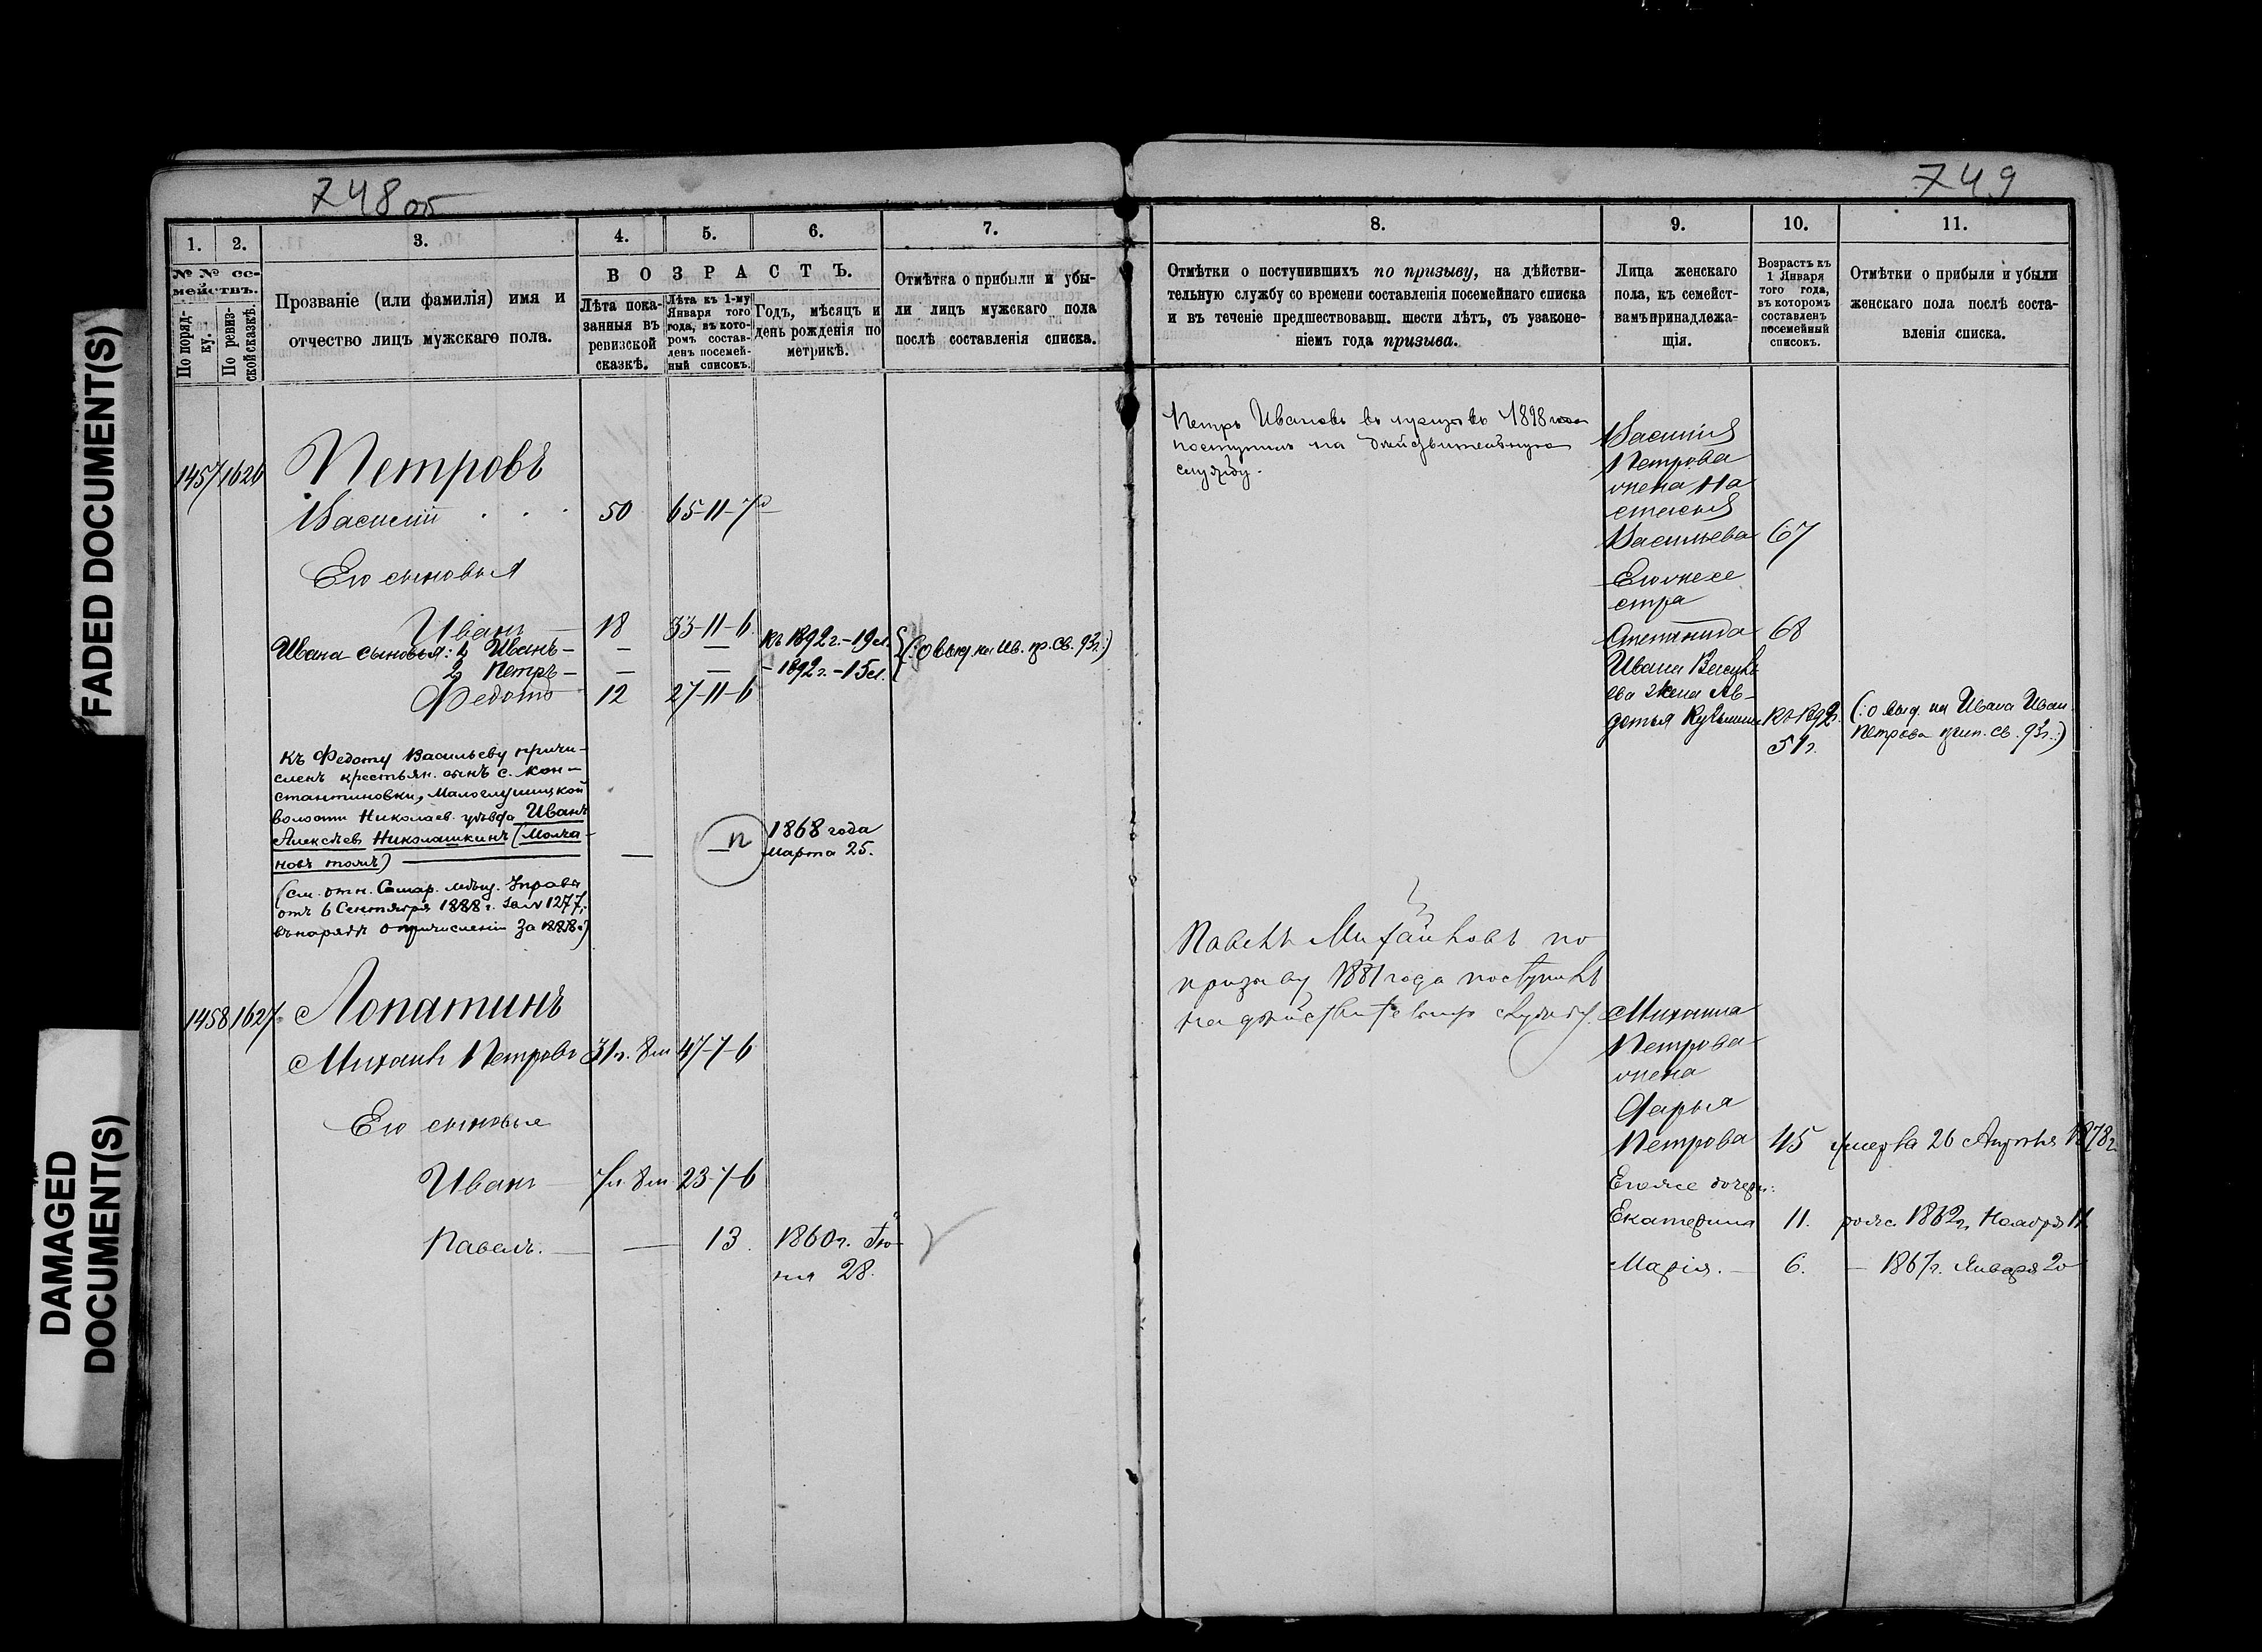 FADED DOCUMENT(S)
DAMAGED
DOCUMENT(S)
748 об
1.
2.
3.
4.
5.
6.
7.
№ № се-
мействъ.
По поряд-
ку.
По ревиз-
ской сказкѣ.
Прозваніе (или фамилія) имя и
отчество лицъ мужскаго пола.
ВОЗРАСТЪ.
Лѣта пока-
занныя въ
ревизской
сказкѣ.
Лѣта къ 1-му
Января того
года, въ кото-
ромъ состав-
ленъ посемей-
ный списокъ.
Годъ, мѣсяцъ и
день рожденія по
метрикѣ.
Отмѣтка о прибыли и убы-
ли лицъ мужскаго пола
послѣ составленія списка.
1457 1626 Петровъ
Василій . . . 50 65-11-7
Его сыновья
Иванъ — 18 33-11-6
Ивана сыновья: 1, Иванъ — — — къ 1892 г. - 19 л. (: о выд. на Ив. пр. св. 93 г.:)
2, Петръ — — — - 1892 г. - 15 л.
Федотъ 12 27-11-6
Къ Федоту Васильеву причи-
сленъ крестьян. сынъ с. Кон-
стантиновки,
волости Николаев. уѣзда Иванъ
Алексѣевъ Николашкинъ (Молча-
новъ тожъ) — — п 1868 года
Марта 25.
(см. отн. Самар. мѣщ. Управы
отъ 6 Сентября 1888 г. за № 1277,
въ нарядѣ о причисленіи за 1888 г.)
1458 1627 Лопатинъ
Михаилъ Петровъ 31 л. 8 м 47-7-6
Его сыновья
Иванъ — 7 л. 8 м 23-7-6
Павелъ. — — 13. 1860 г. Iю-
ня 28.
749
8.
9.
10.
11.
Отмѣтки о поступившихъ по призыву, на дѣйстви-
тельную службу со времени составленія посемейнаго списка
и въ теченіе предшествовавш. шести лѣтъ, съ узаконе-
ніемъ года призыва.
Лица женскаго
пола, къ семейст-
вамъ принадлежа-
щія.
Возрастъ къ
1 Января
того года,
въ которомъ
составленъ
посемейный
списокъ.
Отмѣтки о прибыли и убыли
женскаго пола послѣ соста-
вленія списка.
Петръ Ивановъ въ призывъ 1898 года
поступилъ на дѣйствительную
службу.
Василія
Петрова
жена На
стасья
Васильева 67
Его же се
стра
Степанида 68
Ивана Василь
ева жена Ав-
дотья Кузьмина къ 1892 г. (: о выд. на Ивана Иван.
51 г. Петрова св. 93 г.:)
Павелъ Михайловъ по
призыву 1881 года поступилъ
на дѣйствительную службу.
Михаила
Петрова
жена
Дарья
Петрова 45 умерла 26 Апрѣля 1878 г.
Его же дочери:
Екатерина 11. рожд. 1862 г. Ноября 11
Марія. — 6. — 1867 г. Января 20